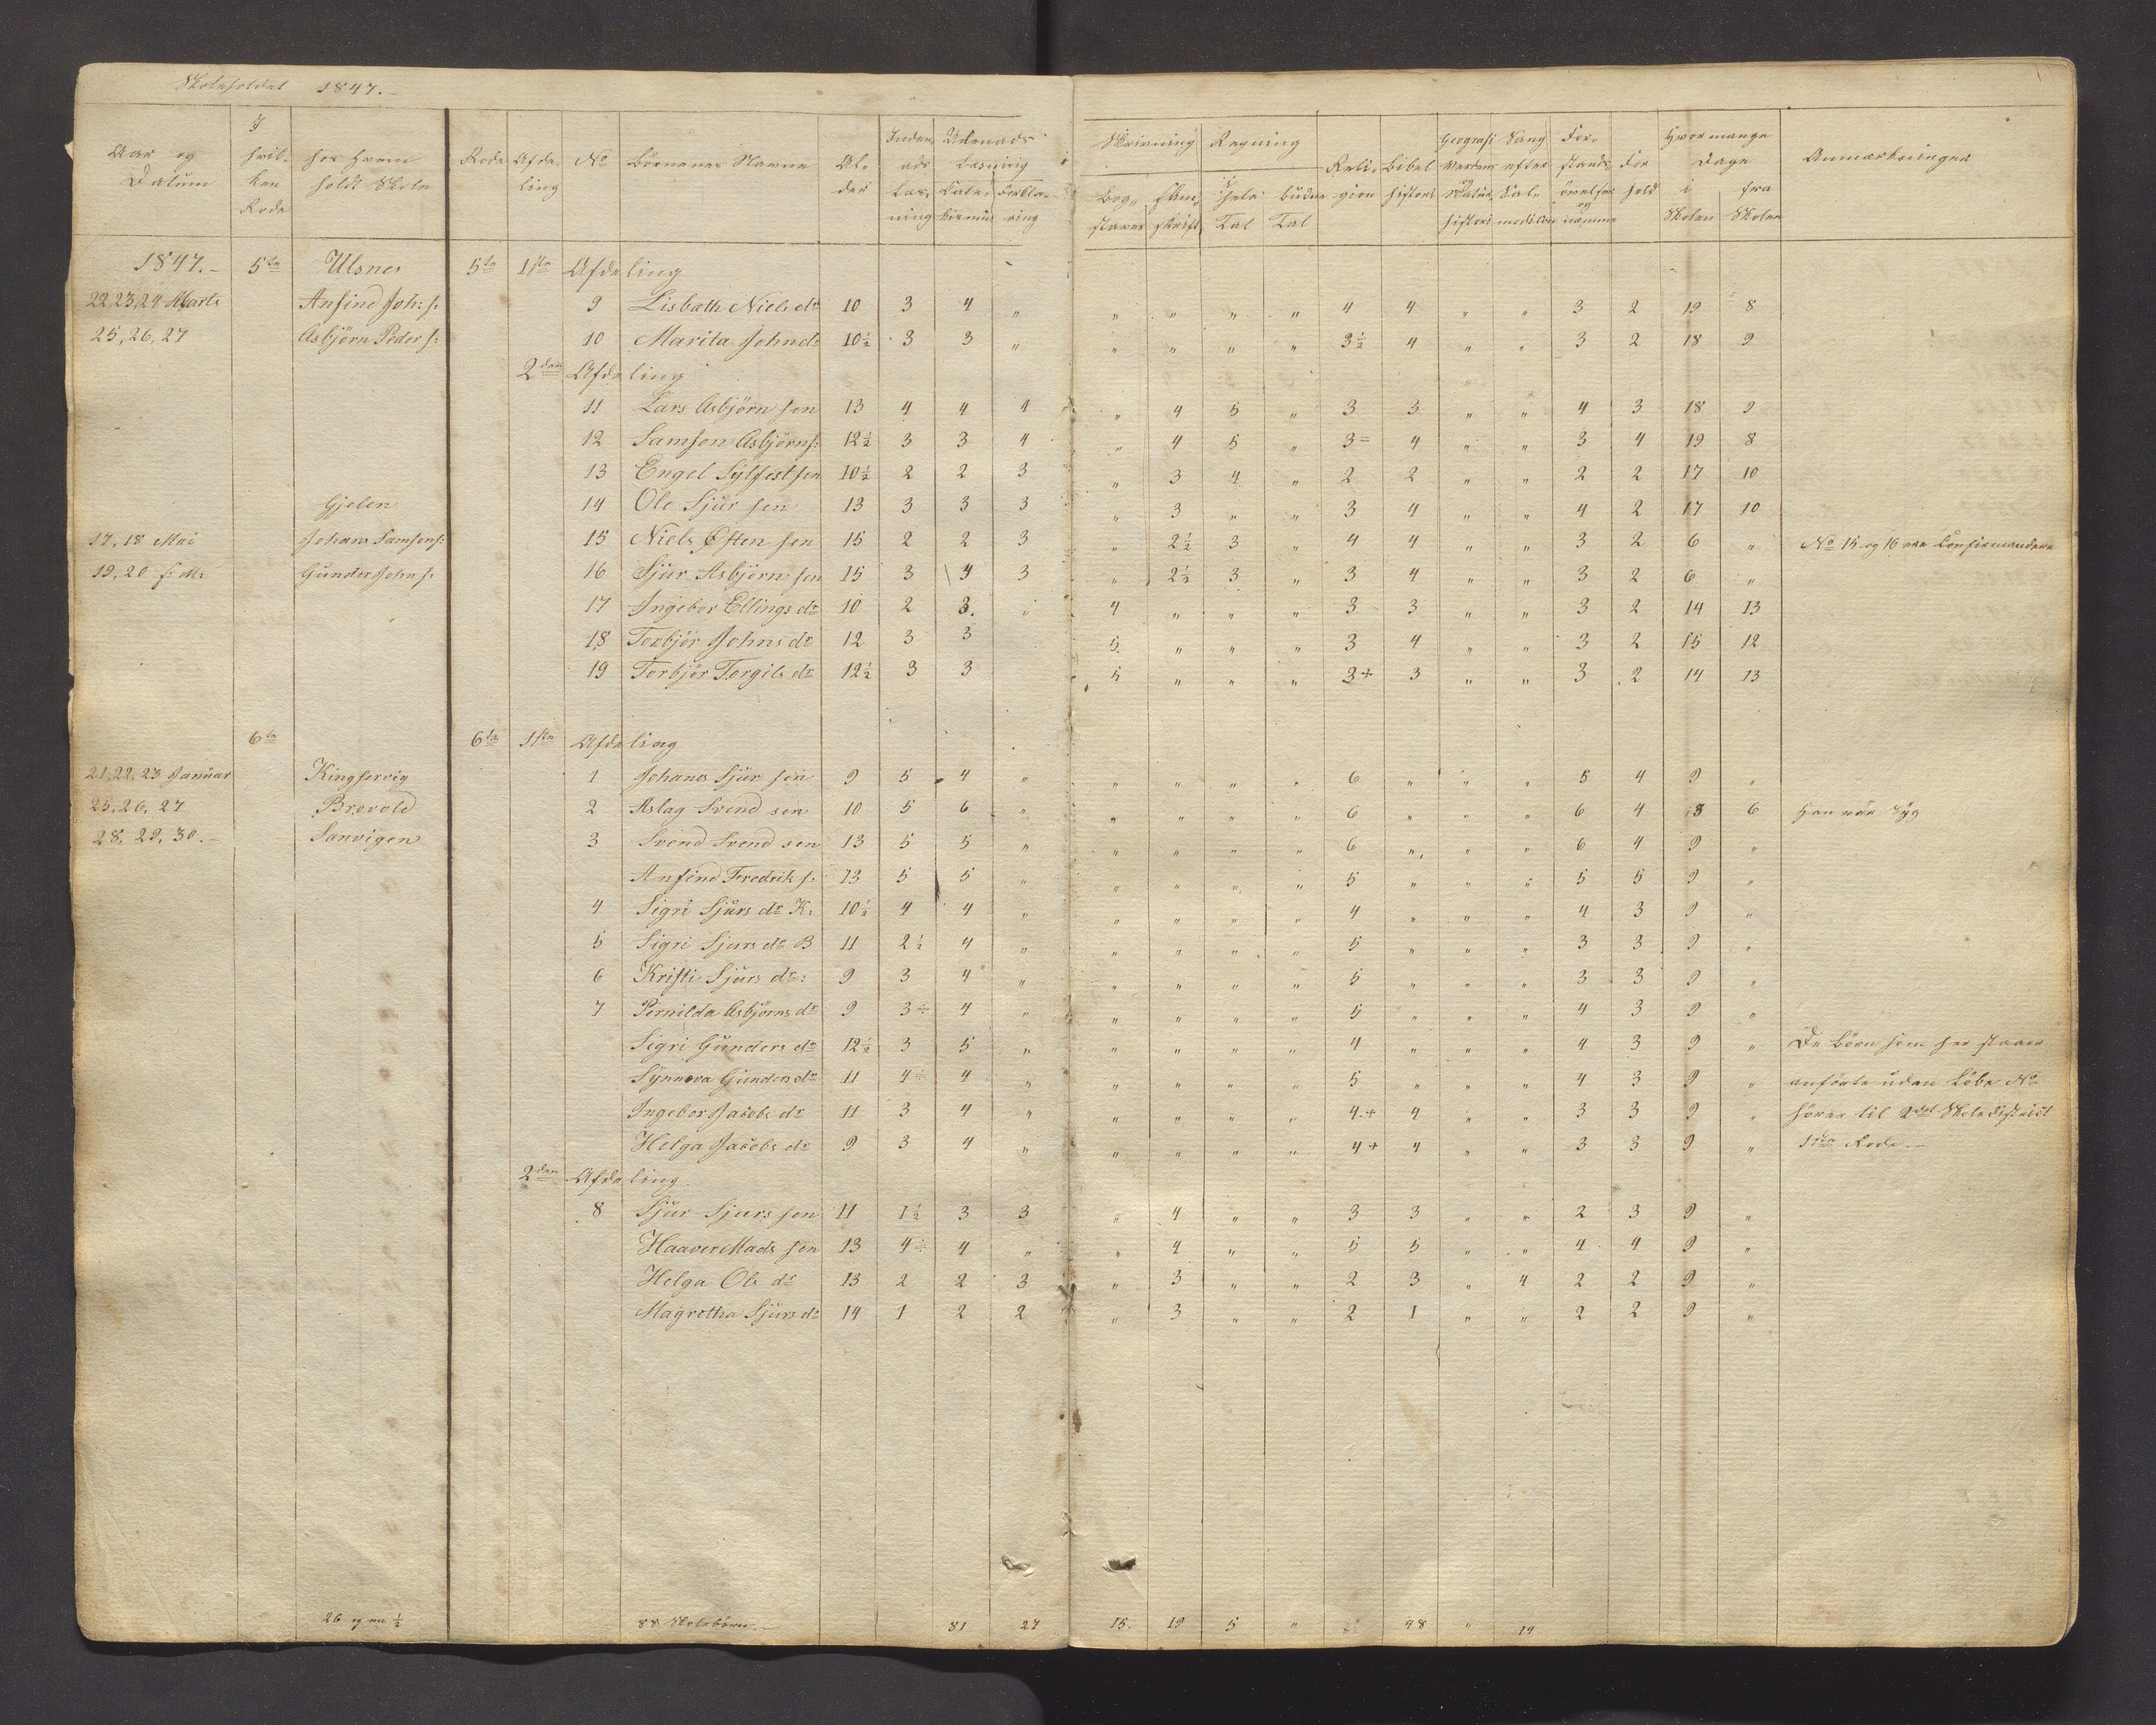 Skoleholdet 1847.-
Aar og Datum | I hvilken Rode | hos hvem holdt Skole | Rode | Afdeling | No | Börnenes Navne | Alder | Indenads Læsning | Udenads Læsning Catechismus | Forklaring | Skrivning Bogstaver | Sammenskrift | Regning i hele Tal | brudne Tal | Religion | Bibelhistorie | Geografi Verdens og Naturhistorie | Sang efter Salmodikon | Forstandsövelser og nemme | Forhold | Hvor mange Dage i Skolen | fra Skolen | Anmærkninger
1847.- | 5te | Ulsnes | 5te | 1ste | Afdeling
22,23,24 Marts | Ansind Joh: s: | 9 | Lisbeth Niels dr | 10 | 3 | 4 | " | " | " | " | " | 4 | 4 | " | " | 3 | 2 | 19 | 8
25,26,27 | Asbjörn Peder s: | 10 | Marita John dr | 10½ | 3 | 3 | " | " | " | " | " | 3½ | 4 | " | " | 3 | 2 | 18 | 9
2den Afdeling
11 | Lars Asbjörn sen | 13 | 4 | 4 | 4 | " | 4 | 5 | " | 3 | 3 | " | " | 4 | 3 | 18 | 9
12 | Samson Asbjörn s: | 12½ | 3 | 3 | 4 | " | 4 | 5 | " | 3= | 4 | " | " | 3 | 4 | 19 | 8
13 | Engel Sylfest sen | 10½ | 2 | 2 | 3 | " | 3 | 4 | " | 2 | 2 | " | " | 2 | 2 | 17 | 10
Gjelen | 14 | Ole Sjur sen | 13 | 3 | 3 | 3 | " | 3 | " | " | 3 | 4 | " | " | 4 | 2 | 17 | 10
17, 18 Mai | Johans Samsons: | 15 | Niels Østen sen | 15 | 2 | 2 | 3 | " | 2½ | 3 | " | 4 | 4 | " | " | 3 | 2 | 6 | " | No 15 og 16 var Confirmandere
19, 20 s: M: | Gunder John s: | 16 | Sjur Asbjörn sen | 15 | 3 | 4 | 3 | " | 2½ | 3 | " | 3 | 4 | " | " | 3 | 2 | 6 | "
17 | Ingebor Ellings dr | 10 | 2 | 3. | " | 4 | " | " | " | 3 | 3 | " | " | 3 | 2 | 14 | 13
18 | Torbjör Johns dr | 12 | 3 | 3 | 5. | " | " | " | 3 | 4 | " | " | 3 | 2 | 15 | 12
19 | Torbjör Torgils dr | 12½ | 3 | 3 | 5 | " | " | " | 3+ | 3 | " | " | 3 | 2 | 14 | 13
6te | 6te | 1ste | Afdeling
21,22,23 Januar | Kingservig | 1 | Johanes Sjur sen | 9 | 5 | 4 | " | " | " | " | " | 6 | " | " | " | 5 | 4 | 9 | "
25,26,27 | Brevold | 2 | Aslag Svend sen | 10 | 5 | 6 | " | " | " | " | " | 6 | " | " | " | 6 | 4 | 8 | 6 | Han var Syg
28, 29, 30.- | Sanvigen | 3 | Svend Svend sen | 13 | 5 | 5 | " | " | " | " | " | 6 | " | " | " | 6 | 4 | 9 | "
Ansind Fredrik s: | 13 | 5 | 5 | " | " | " | " | " | 5 | " | " | " | 5 | 5 | 9 | "
4 | Sigri Sjurs dr K: | 10½ | 4 | 4 | " | " | " | " | " | 4 | " | " | " | 4 | 3 | 9 | "
5 | Sigri Sjurs dr B | 11 | 2½ | 4 | " | " | " | " | " | 5 | " | " | " | 3 | 3 | 9 | "
6 | Kristi Sjurs dr: | 9 | 3 | 4 | " | " | " | " | " | 5 | " | " | " | 3 | 3 | 9 | "
7 | Pernilda Asbjörns dr | 9 | 3÷ | 4 | " | " | " | " | " | 5 | " | " | " | 4 | 3 | 9 | "
Sigri Gunders dr | 12½ | 3 | 5 | " | " | " | " | " | 4 | " | " | " | 4 | 3 | 9 | " | De Börn som her staaer
Synnova Gunders dr | 11 | 4÷ | 4 | " | " | " | " | " | 5 | " | " | " | 4 | 3 | 9 | " | anförte uden Löbe No
Ingebor Jacobs dr | 11 | 3 | 4 | " | " | " | " | " | 4.+ | 4 | " | " | 3 | 3 | 9 | " | hörer til 2det Skoledistrict
Helga Jacobs dr | 9 | 3 | 4 | " | " | " | " | " | 4+ | 4 | " | " | 3 | 3 | 9 | " | 11te Rode.-
2den Afdeling.
8 | Sjur Sjurs sen | 11 | 1½ | 3 | 3 | " | 4 | " | " | 3 | 3 | " | " | 2 | 3 | 9 | "
Haaver Mads sen | 13 | 4÷ | 4 | " | " | 4 | " | " | 5 | 5 | " | " | 4 | 4 | 9 | "
Helga Ols dr | 13 | 2 | 2 | 3 | " | 3 | " | " | 2 | 3 | " | 4 | 2 | 2 | 9 | "
Magretha Sjurs dr | 14 | 1 | 2 | 2 | " | 3 | " | " | 2 | 1 | " | " | 2 | 2 | 9 | "
26 og en ½ | 88 Skolebörn.- | 81 | 27 | 15. | 19 | 5 | " | 48 | " | 14